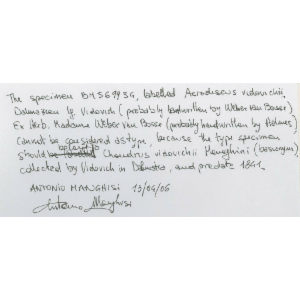 The specimen BM569939, labelled Acrodiscus vidovichii,
Dalmazien lg. Vidovich (probably handwritten by Weber van Bosse)
Ex Herb. Madame Weber van Bosse (probably handwritten by Holmes)
cannot be considered as type, because the type specimen
should be Chondrus vidovichii Meneghini (basionym),
collected by Vidovich in Dalmatia, and predate 1841.
ANTONIO MANGHISI 15/09/06
Antonio Manghisi